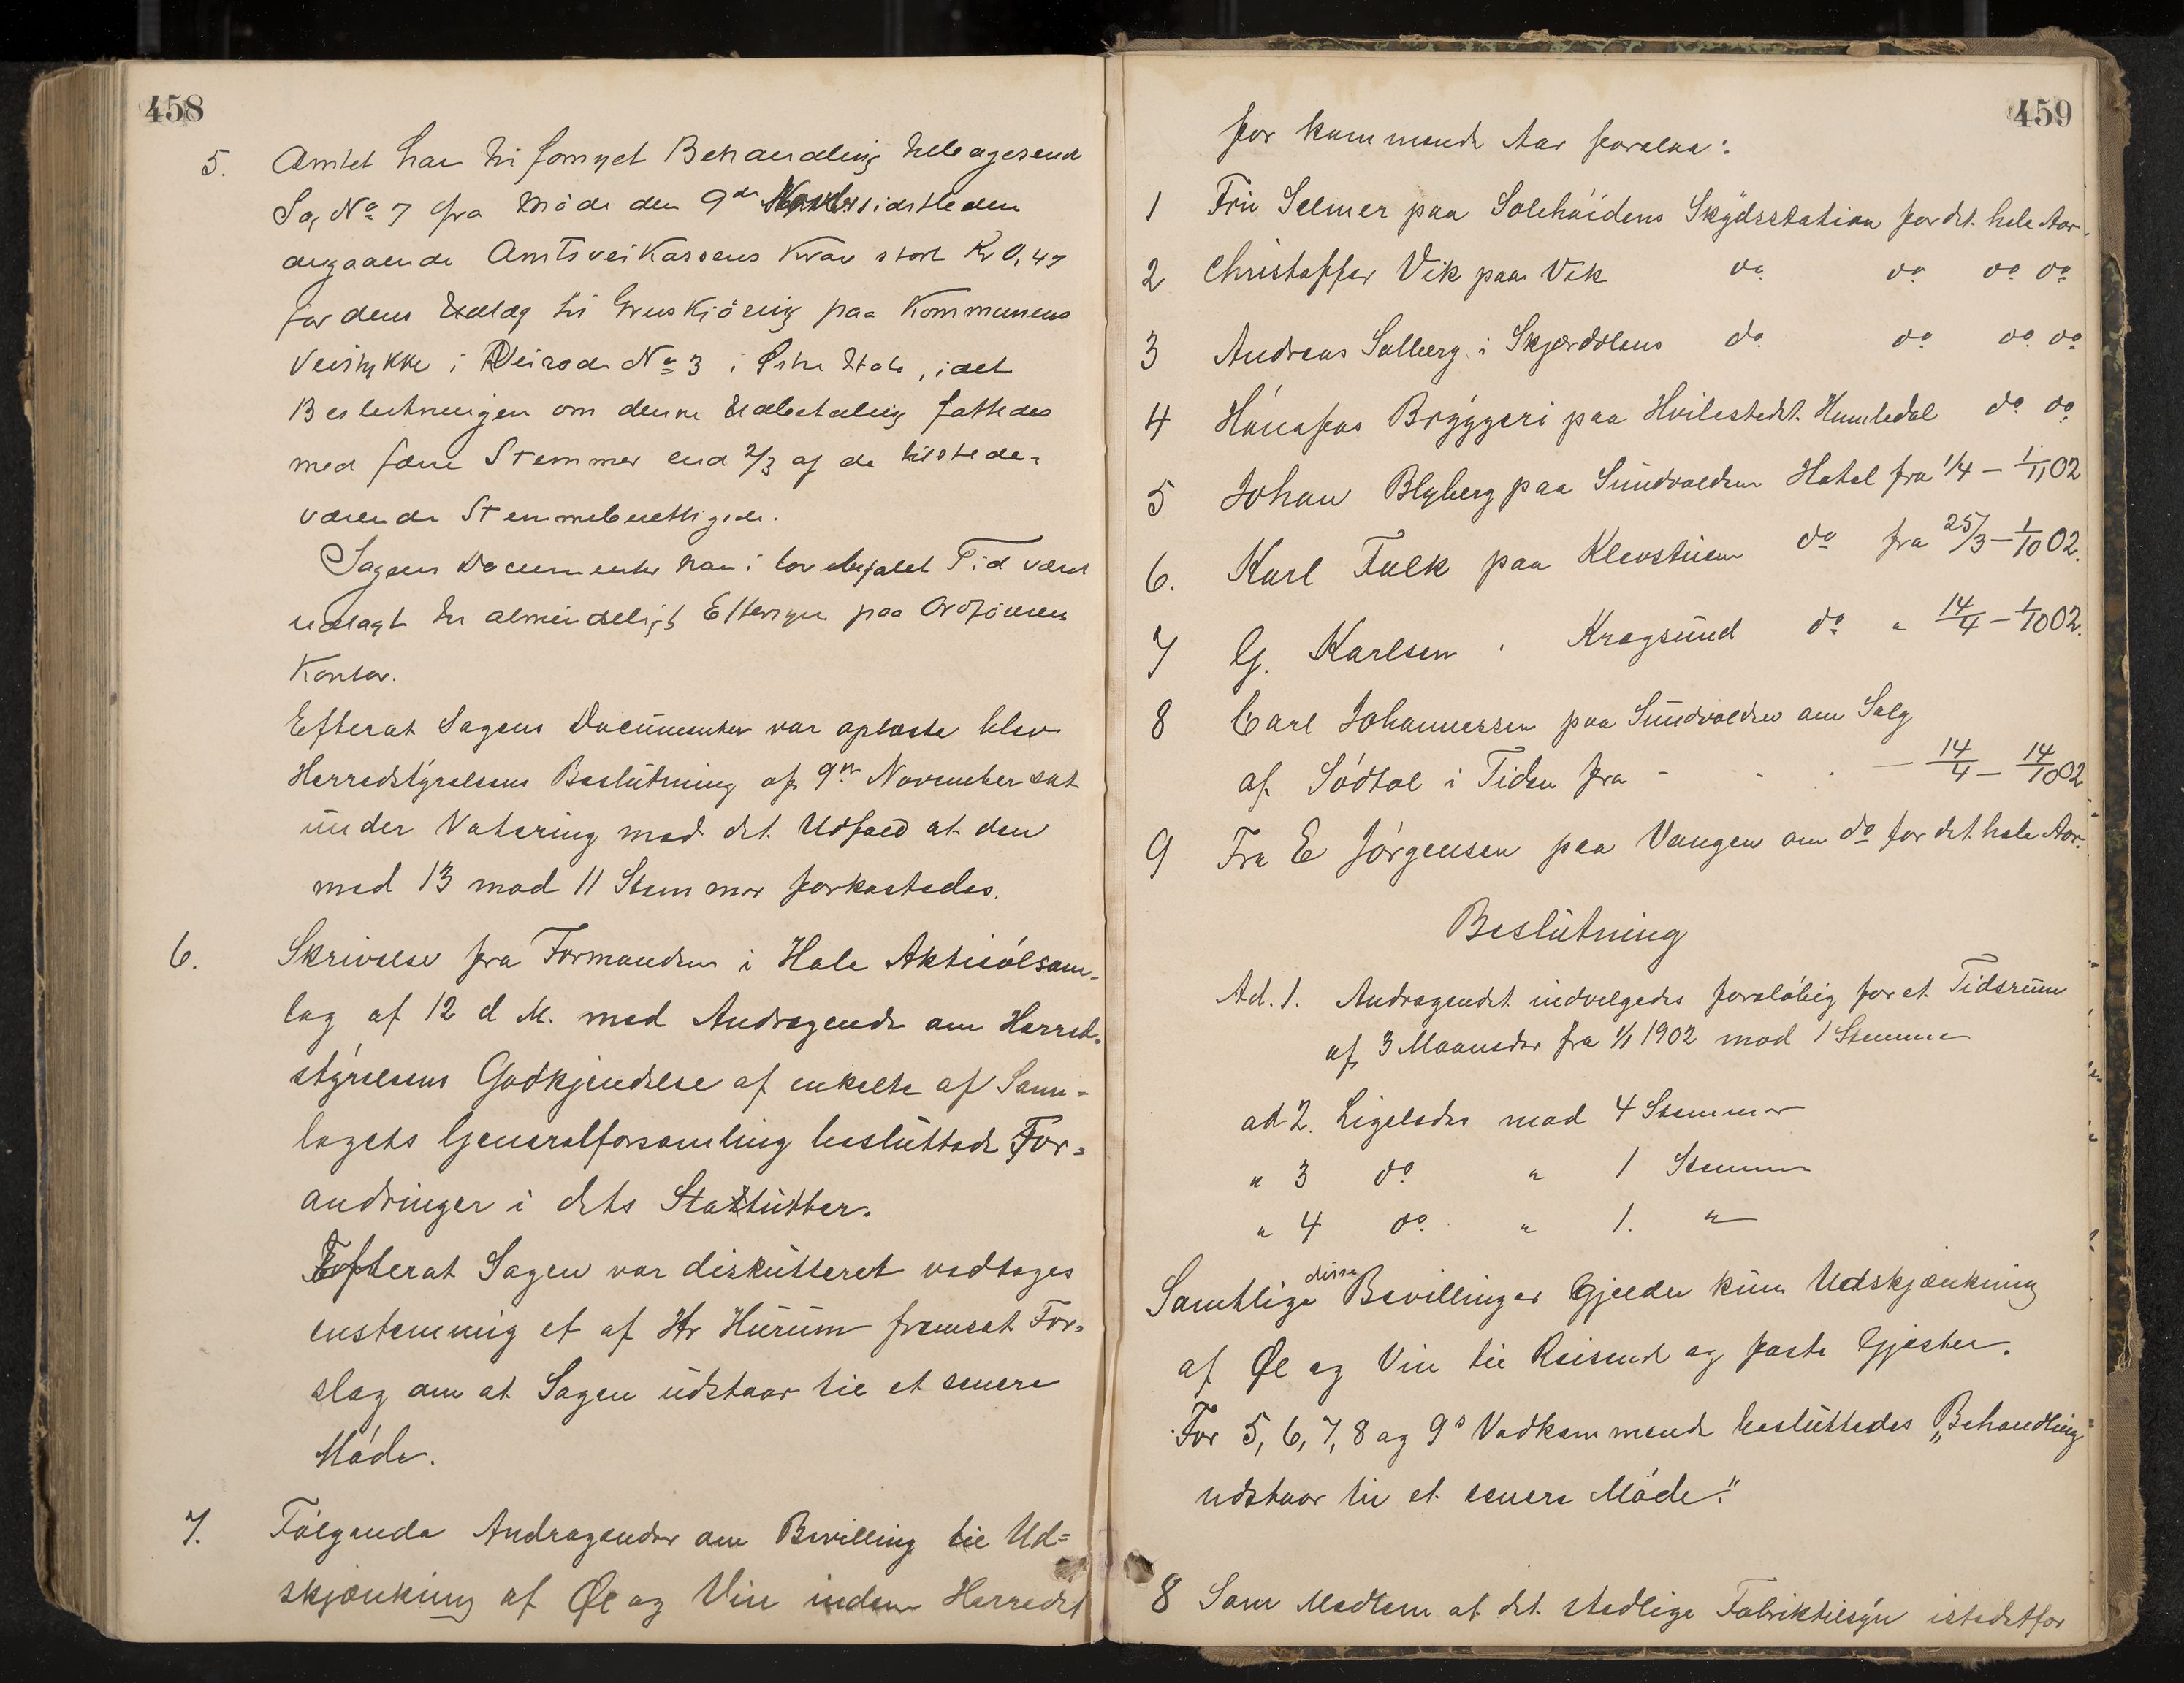 458
5. Amtet har til fornyet Behandling tilbagesendt
Sag No 7 fra Møde den 9de Novbr sidstleden
angaaende Amtsveikassens Krav stort Kr 0,47
for dens Udlæg til Gruskjöring paa Kommunens
Veistykke i Veirode No 3 i Østre Hole, idet
Beslutningen om denne Udbetaling fattedes
med færre Stemmer end 2/3 af de tilstede-
værende Stemmeberettigede.
Sagens Documenter har i lovbefalet Tid været
udlagt til almindeligt Eftersyn paa Ordförerens
Kontor.
Efterat Sagens Documenter var oplæste blev
Herredstyrelsens Beslutning af 9de November sat
under Votering med det Udfald at den
med 13 mod 11 Stemmer forkastedes.
6. Skrivelse fra Formanden i Hole Aktieölsam-
lag af 12 d M. med Andragende om Herred-
styrelsens Godkjendelse af enkelte af Sam-
lagets Generalforsamling besluttede For-
andringer i dets Statutter.
Efterat Sagen var diskutteret vedtages
enstemmig et af Hr Hurum fremsat For-
slag om at Sagen udstaar til et senere
Möde.
7. Fölgende Andragender om Bevilling til Ud-
skjænkning af Øl og Vin inden Herredet
459
for kommende Aar forelaa:
1 Fru Selmer paa Solehöidens Skydsstation for det hele Aar.
2 Christoffer Vik paa Vik do do do do
3 Andreas Solberg i Skjærdalens do do do do
4 Hönefos Bryggeri paa Hvilestedet Humledal do do
5 Johan Blyberg paa Sundvolden Hotel fra 1/4 – 1/11 02
6. Karl Falk paa Klevstuen do fra 25/3 – 1/10 02.
7 G. Karlsen " Kragsund do " 14/4 – 1/10 02.
8 Carl Johannessen paa Sundvolden om Salg
af Södtöl i Tiden fra - - - 14/4 – 14/10 02
9 Fra E Jörgensen paa Vangen om do for det hele Aar.
Beslutning
Ad. 1. Andragendet indvilgedes foreløbig for et Tidsrum
af 3 Maaneder fra 1/1 1902 mod 1 Stemme
ad 2. Ligeledes mod 4 Stemmer
" 3 do " 1 Stemme
" 4 do " 1. "
Samtlige disse Bevillinger gjelder kun Udskjænkning
af Øl og Vin til Reisende og faste Gjæster.
For 5, 6, 7, 8 og 9s Vedkommende besluttedes „Behandling
udstaar til et senere Möde."
8 Som Medlem af det stedlige Fabriktilsyn istedetfor